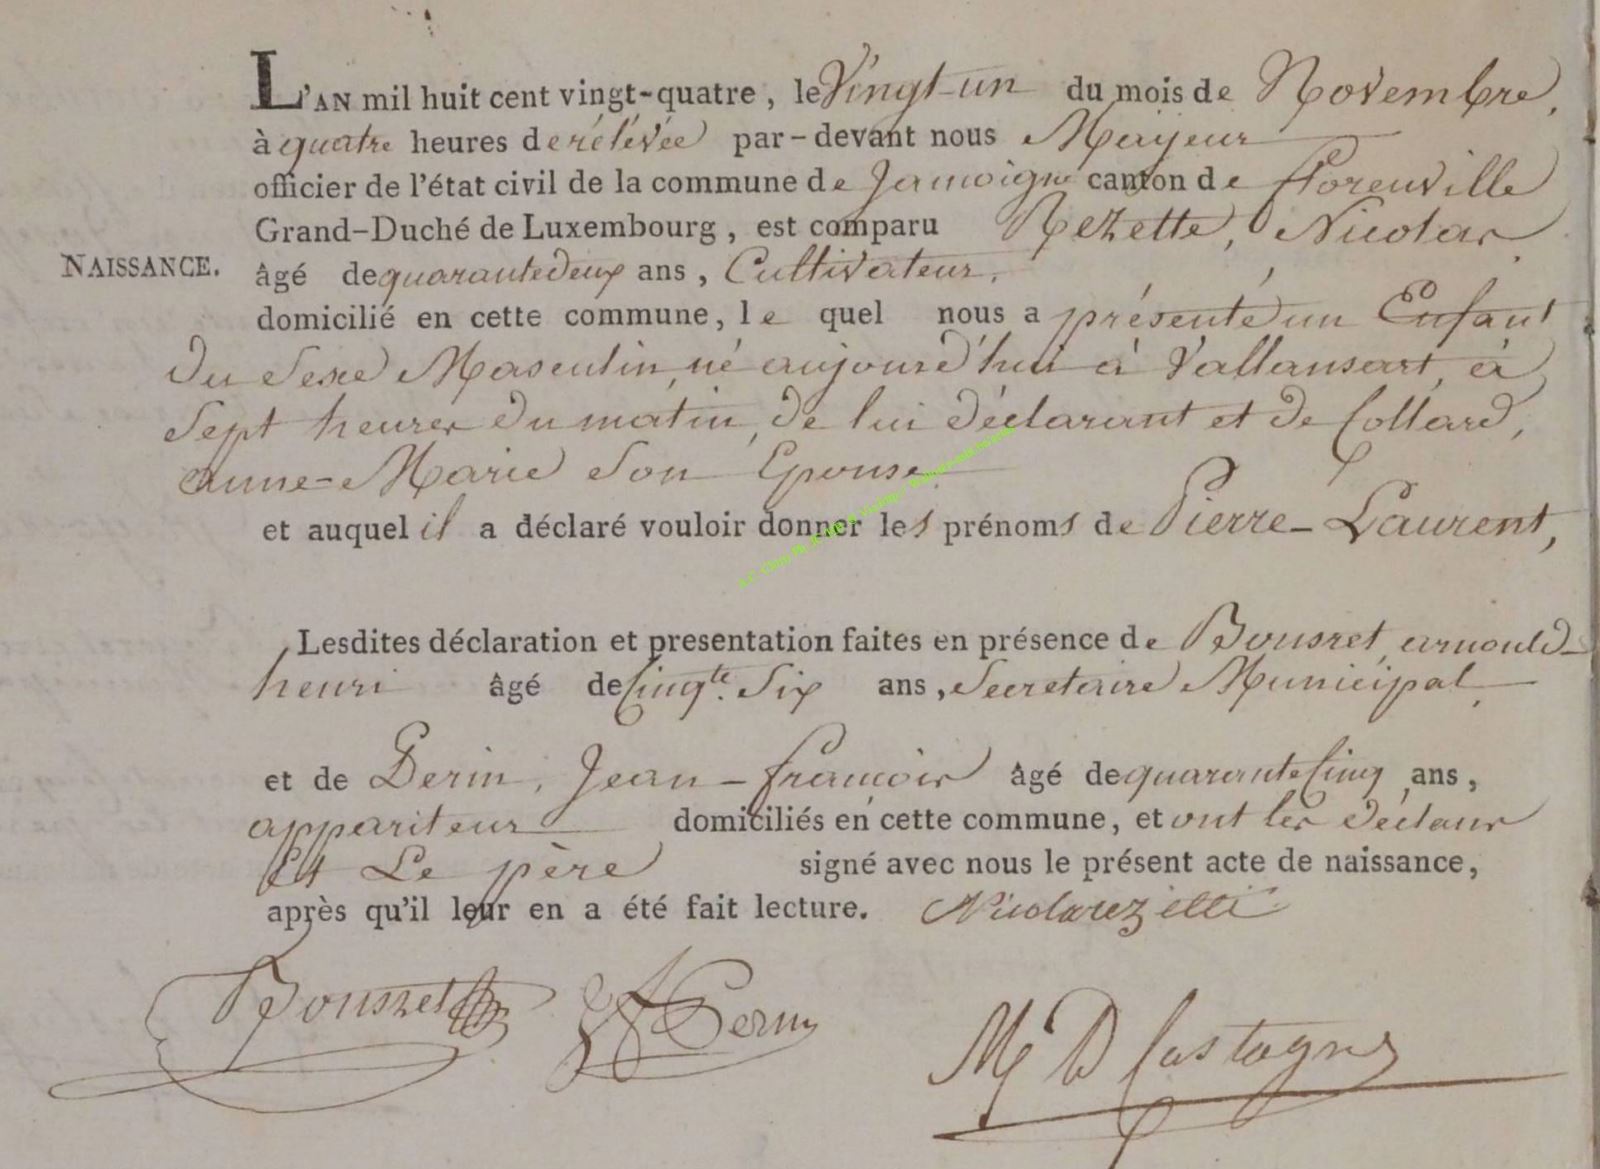 L'AN mil huit cent vingt-quatre, le Vingt-un du mois de Novembre,
à quatre heures de rélévée par-devant nous Mayeur
officier de l'état civil de la commune de Jamoigne canton de florenville
Grand-Duché de Luxembourg, est comparu Rezette, Nicolas
NAISSANCE. âgé de quarante deux ans, Cultivateur,
domicilié en cette commune, le quel nous a présenté un Enfant
du Sexe Masculin, né aujourd'hui à Vallansart, à
Sept heures du matin, de lui déclarant et de Collard,
anne-Marie Son Epouse.
et auquel il a déclaré vouloir donner les prénoms de Pierre-Laurent,
Lesdites déclaration et presentation faites en présence de Bousret, arnould-
henri âgé de Cinqte. Six ans, Secretaire Municipal,
et de Perin, Jean-françois âgé de quarante Cinq ans,
appariteur domiciliés en cette commune, et ont les déclans
Et Le père signé avec nous le présent acte de naissance,
après qu'il leur en a été fait lecture. Nicolas
Bousret Perin
Castagne